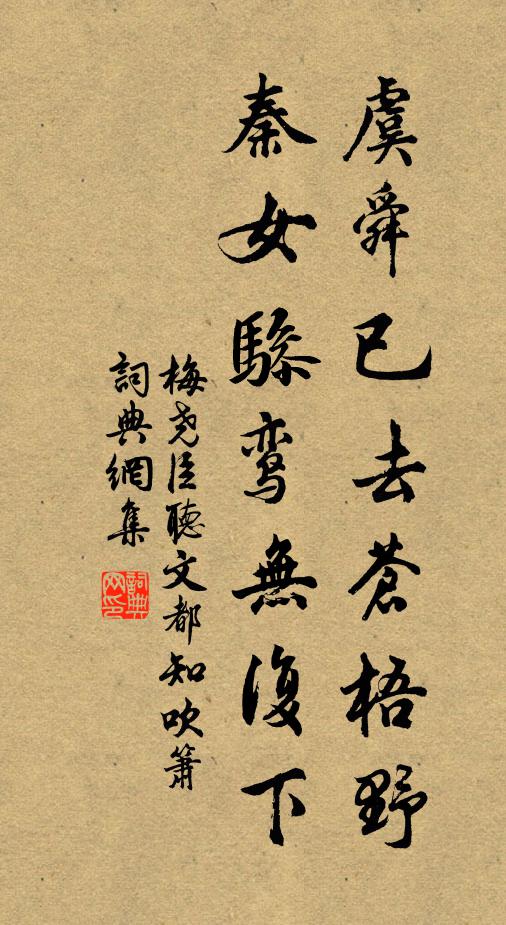 虞舜已去蒼梧野
秦女驂鸾無復下
梅尧臣聽文都知吹簫
詞典網集
詞典网印